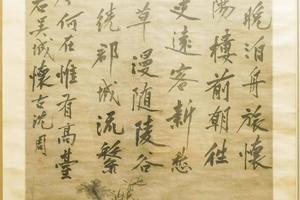 晚泊舟旅懷
陽樓前朝往
遠客新愁
草漫隨陵谷
繞郡城流繁
何在惟有高臺
右吳城懷古沈周